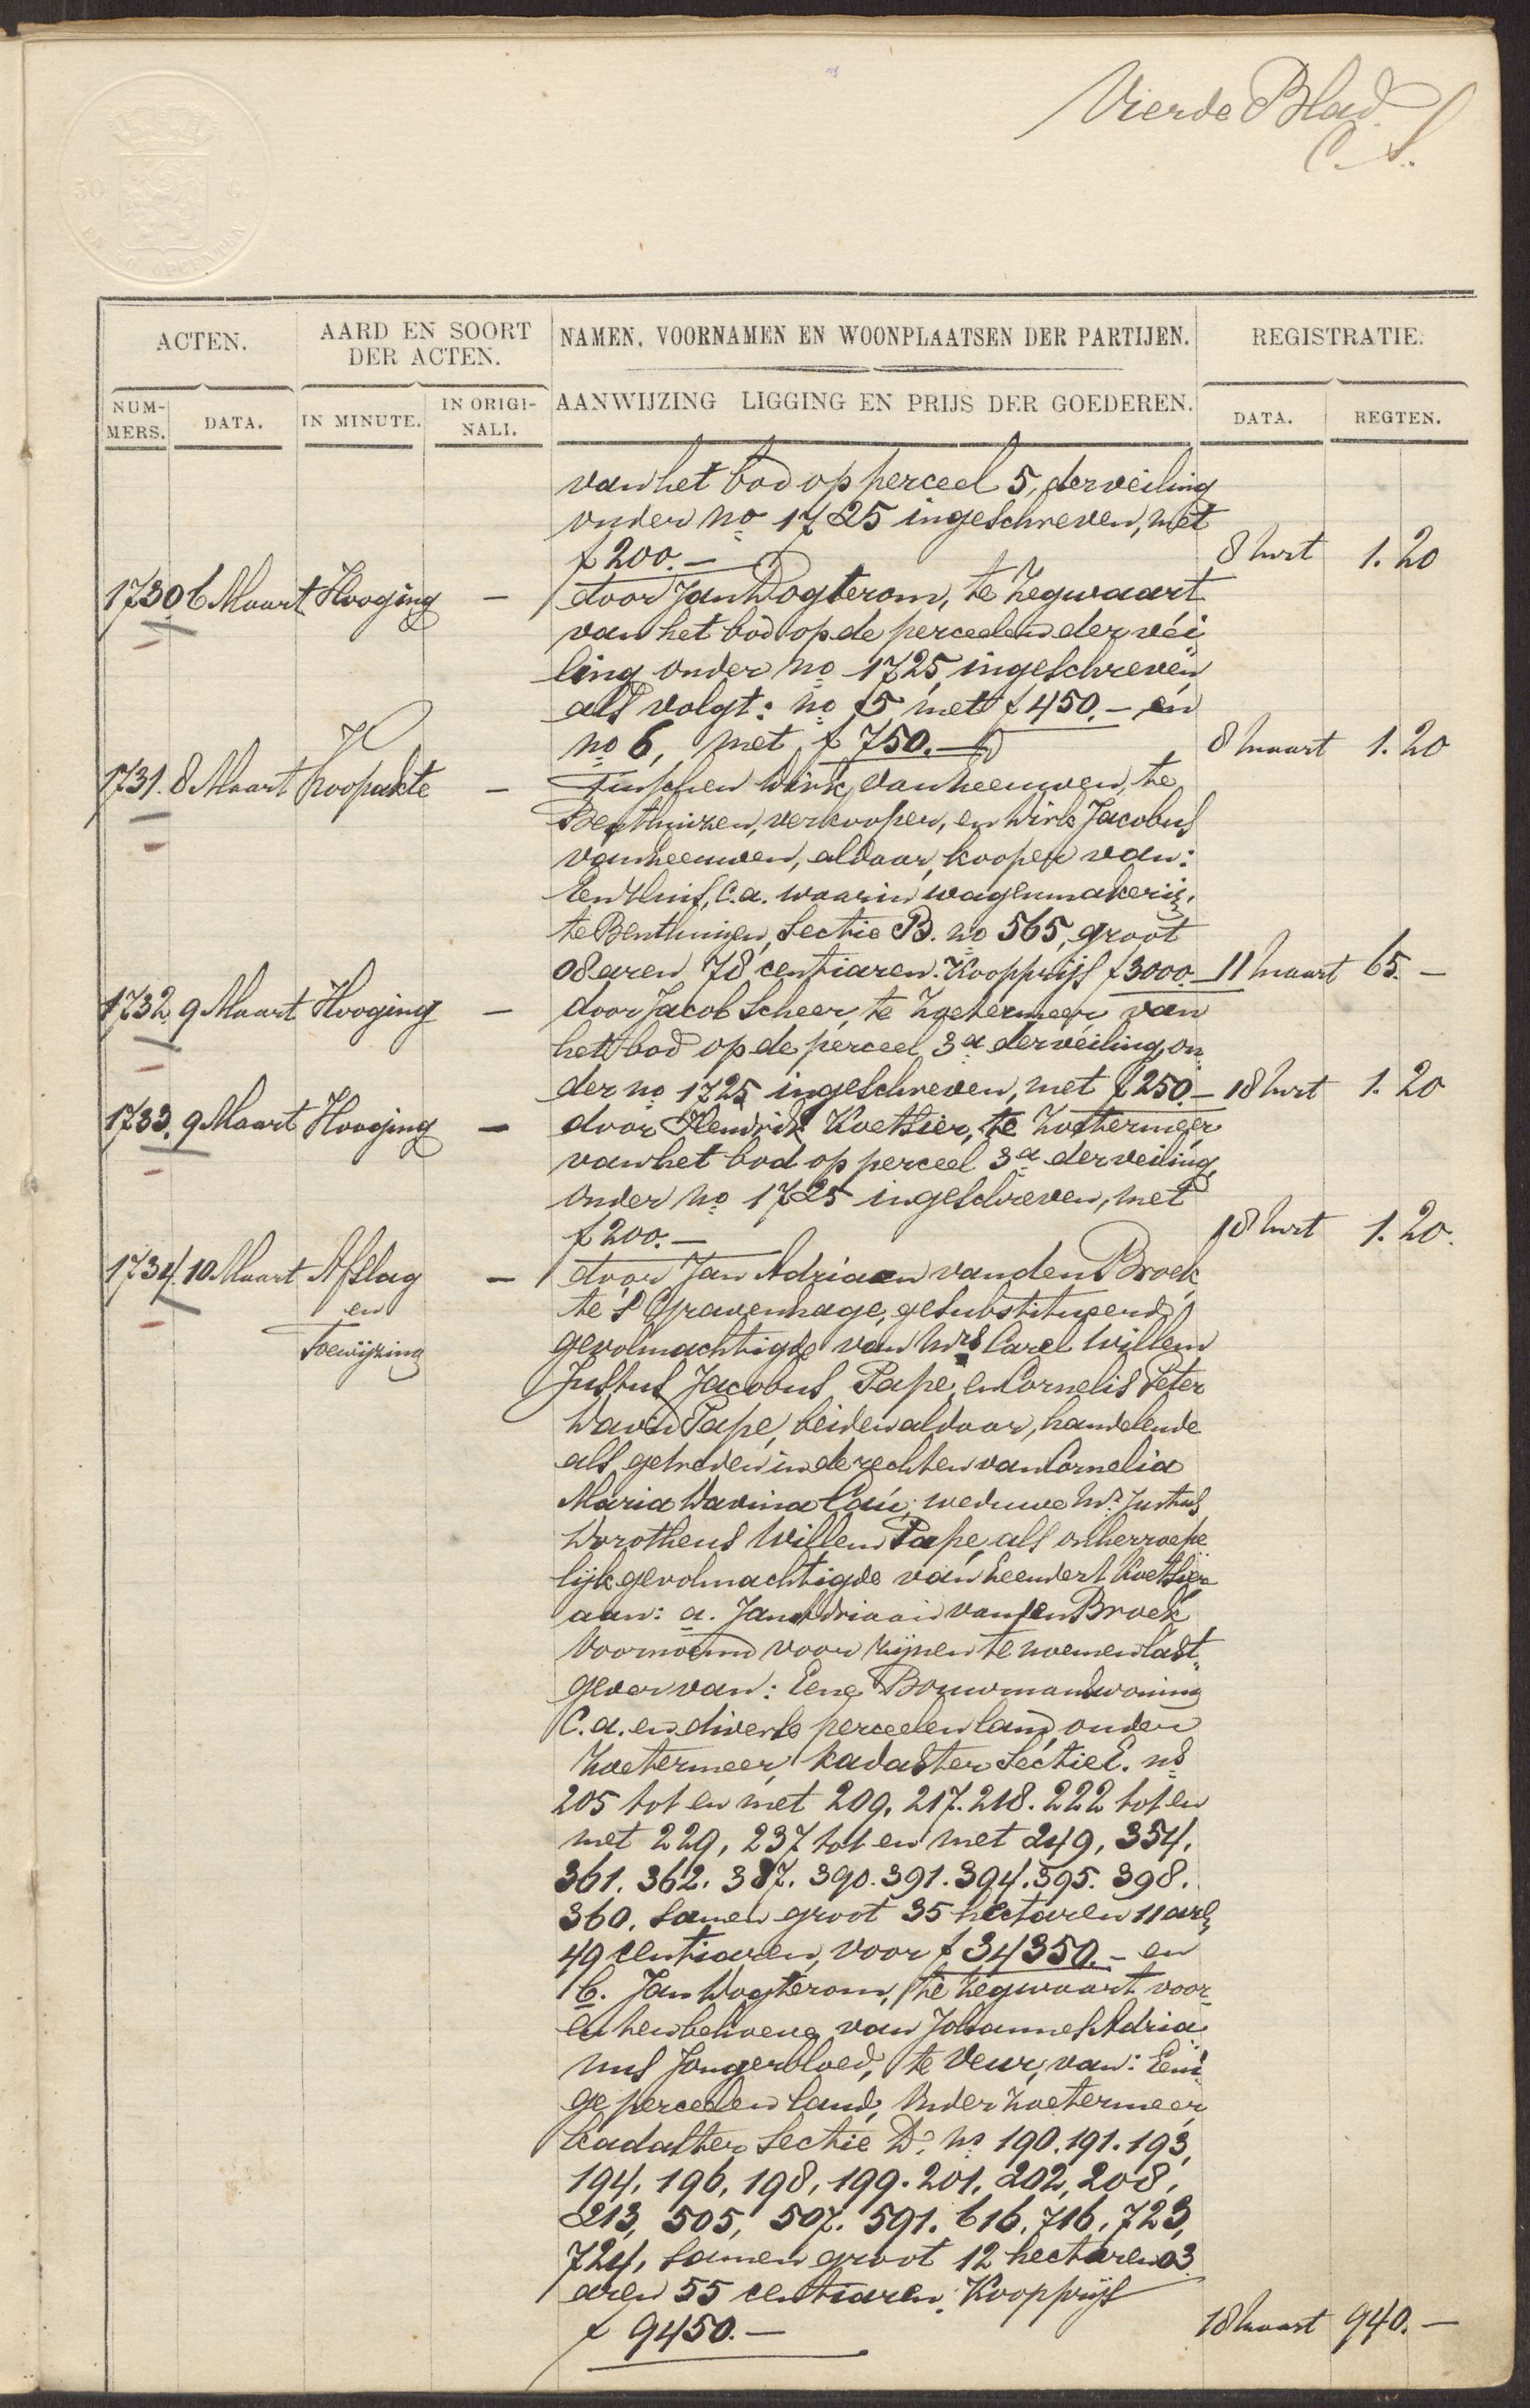 Vierde Blad.
C. S.
50 C.
EN OPCENTEN
ACTEN.
AARD EN SOORT
DER ACTEN.
NAMEN, VOORNAMEN EN WOONPLAATSEN DER PARTIJEN.
REGISTRATIE.
NUM-
MERS.
DATA.
IN MINUTE.
IN ORIGI-
NALI.
AANWIJZING LIGGING EN PRIJS DER GOEDEREN.
DATA.
REGTEN.
van het bod op perceel 5, der veiling
onder no 1725 ingeschreven, met
f 200.— 8 Mrt 1.20
1730. 6 Maart Hooging — door Jan Dogterom, te Zegwaart
van het bod op de perceelen der vei
ling onder no 1725 ingeschreven
als volgt: no 5 met f 450.— en
no 6, met f 750.— 8 Maart 1.20
1731. 8 Maart Koopakte — Tusschen Dirk van Leeuwen, te
Benthuizen, verkooper, en Dirk Jacobus
van Leeuwen, aldaar, kooper van:
Een Huis, c.a. waarin wagenmakerij,
te Benthuizen, Sectie B. no 565, groot
08 aren 78 centiaren. Koopprijs f 3000.— 11 Maart 65.—
1732. 9 Maart Hooging — door Jacob Scheer, te Zoetermeer van
het bod op de perceel 3a der veiling, on
der no 1725 ingeschreven, met f 250.— 18 Mrt 1.20
1733. 9 Maart Hooging — door Hendrik Koetsier, te Zoetermeer
van het bod op perceel 3a der veiling,
onder no 1725 ingeschreven, met
f 200.— 18 Mrt 1.20.
1734. 10 Maart Afslag — door Jan Adriaan van den Broek,
en te 's Gravenhage, gesubstitueerd
Toewijzing gevolmachtigde van Mrs Carel Willem
Justus Jacobus Pape en Cornelis Peter
David Pape, beiden aldaar, handelende
als getreden in de rechten van Cornelia
Maria Davina Cau, weduwe Mr. Justus
Dorotheus Willem Pape, als onherroepe
lijk gevolmachtigde van Leendert Koetsier
aan: a. Jan Adriaan van den Broek
voornoemd voor zijnen te noemen last
gever van: Eene Bouwmanswoning
C.a. en diverse perceelen land, onder
Zoetermeer, kadaster Sectie E. ns
205 tot en met 209, 217. 218. 222 tot en
met 229, 237 tot en met 249, 354,
361. 362. 387. 390. 391. 394. 395. 398.
360, samen groot 35 hectaren 11 aren
49 centiaren, voor f 34350.— en
b. Jan Dogterom, te Zegwaart voor
en ten behoeve van Johannes Adria
nus Jongerbloed, te Veur, van: Eeni
ge perceelen land, onder Zoetermeer
kadaster Sectie D. ns 190. 191. 193,
194, 196, 198, 199. 201, 202, 208,
213, 505, 507. 591. 616. 716. 723,
724, samen groot 12 hectaren 03
aren 55 centiaren. Koopprijs
f 9450.— 18 Maart 940.—